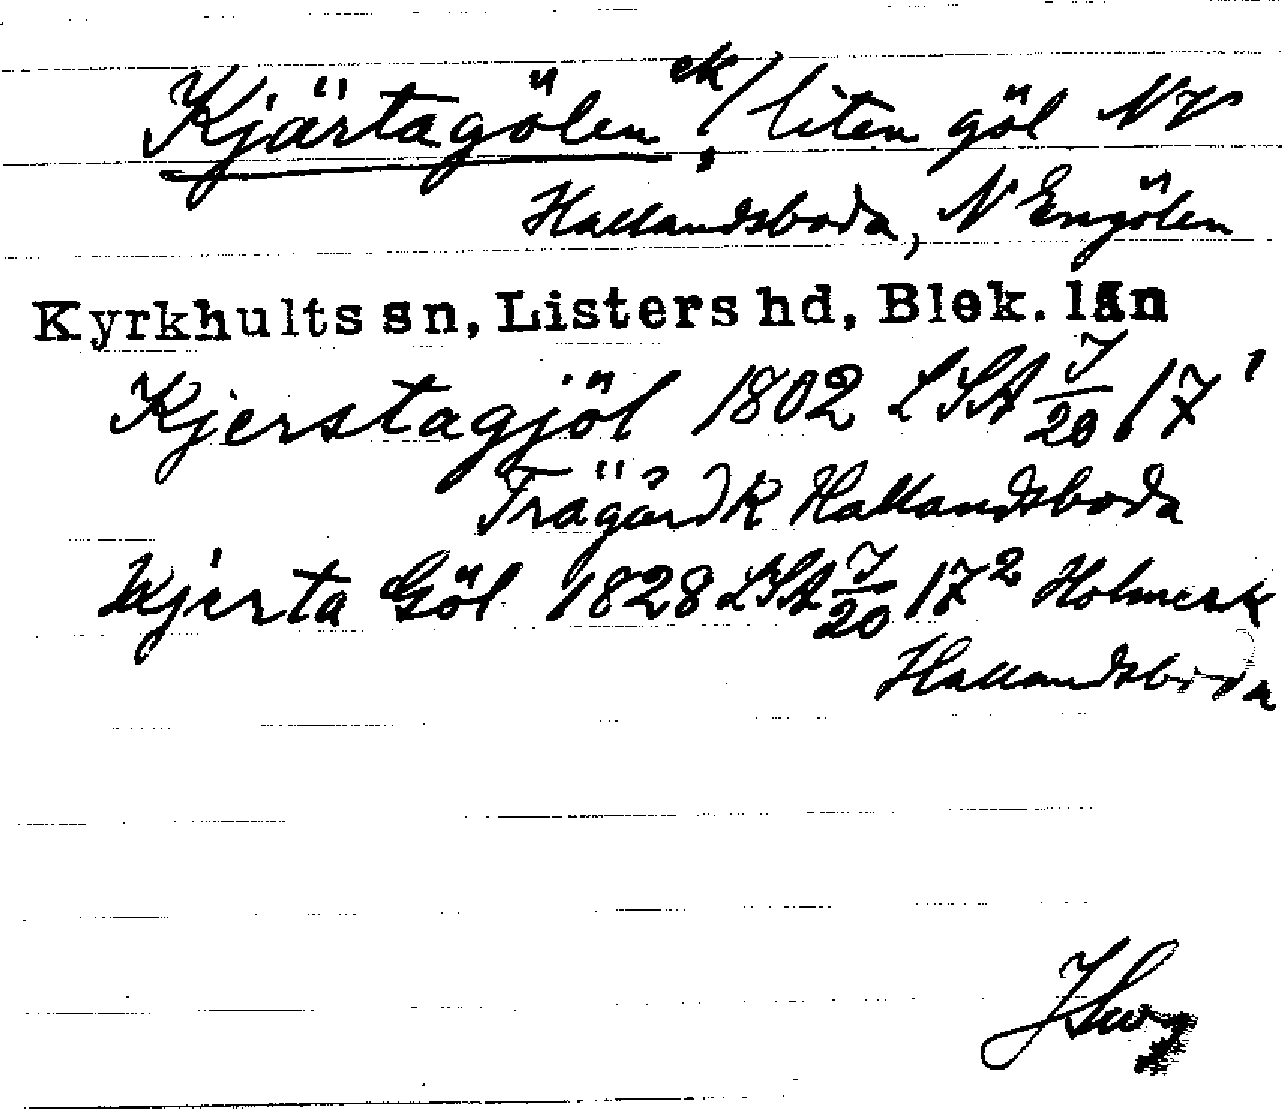 Kjärtagölen ek/ liten göl NV
Hallandsboda, N Engölen
Kyrkhults sn, Listers hd, Blek. län
Kjerstagjöl 1802 LSA J/20 17¹
Trägård k Hallandsboda
Kjerta Göl 1828 LSA J/20 17² Holmesk
Hallandsboda